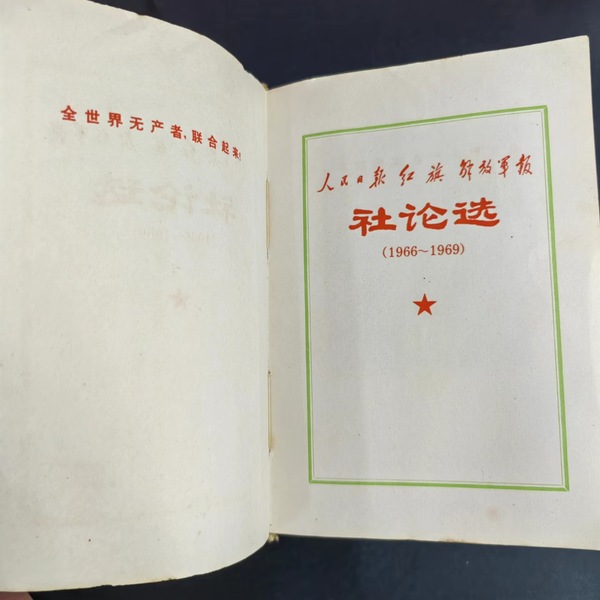 全世界无产者，联合起来！
人民日报 红旗 解放军报
社论选
（1966～1969）